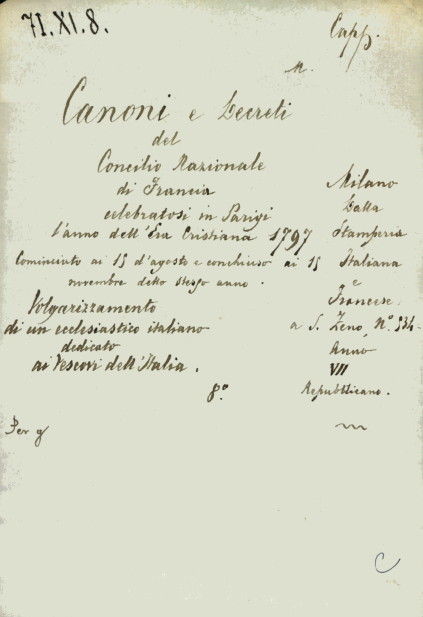 71.XI.8.
Capp.
M.
Canoni e Decreti
del
Concilio Nazionale
di Francia
celebratosi in Parigi
l'anno dell'Era Cristiana 1797
Cominciato ai 15 d'agosto e conchiuso ai 15
novembre dello stesso anno.
Volgarizzamento
di un ecclesiastico italiano
dedicato
ai Vescovi dell'Italia.
8.º
Milano
Dalla
Stamperia
Italiana
e
Francese
a S. Zeno, Nº. 534
Anno
VII
Repubblicano.
Per
C